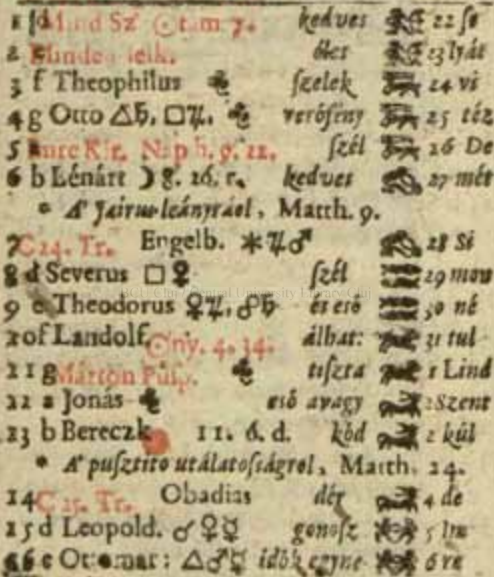 1 d Mind Sz ☉ t.am 7. kedves 22 se
2 Minden lelk. 23 lyát
3 f Theophilus ſzelek 24 vi
4 g Otto △♄, □♃, verőfény 25 téz
5 Imre Kir. Nap h. 9. 22. ſzél 26 De
6 b Lénárt ☽ 8. 26. r. kedves 27 mét
* A' Jairus leányráól, Matth. 9.
7 C 24. Tr. Engelb. ✶♃♂ 28 Si
8 d Severus □♀ ſzél 29 mon
9 e Theodorus ♀♃, ☍♄ és eső 30 né
10 f Landolf. ☉ ny. 4. 34. álhat: 31 tul
11 g Márton Püsp. tiſzta 1 Lind
12 a Jonás eső avagy 2 Szent
13 b Bereczk 11. 6. d. köd 3 kül
* A' puſztito utálatoſságrol, Matth. 24.
14 C 25. Tr. Obadias dér 4 de
15 d Leopold. ☌♀☿ gonoſz 5 Im
16 e Ottomar: △♂☿ idők egyne 6 re